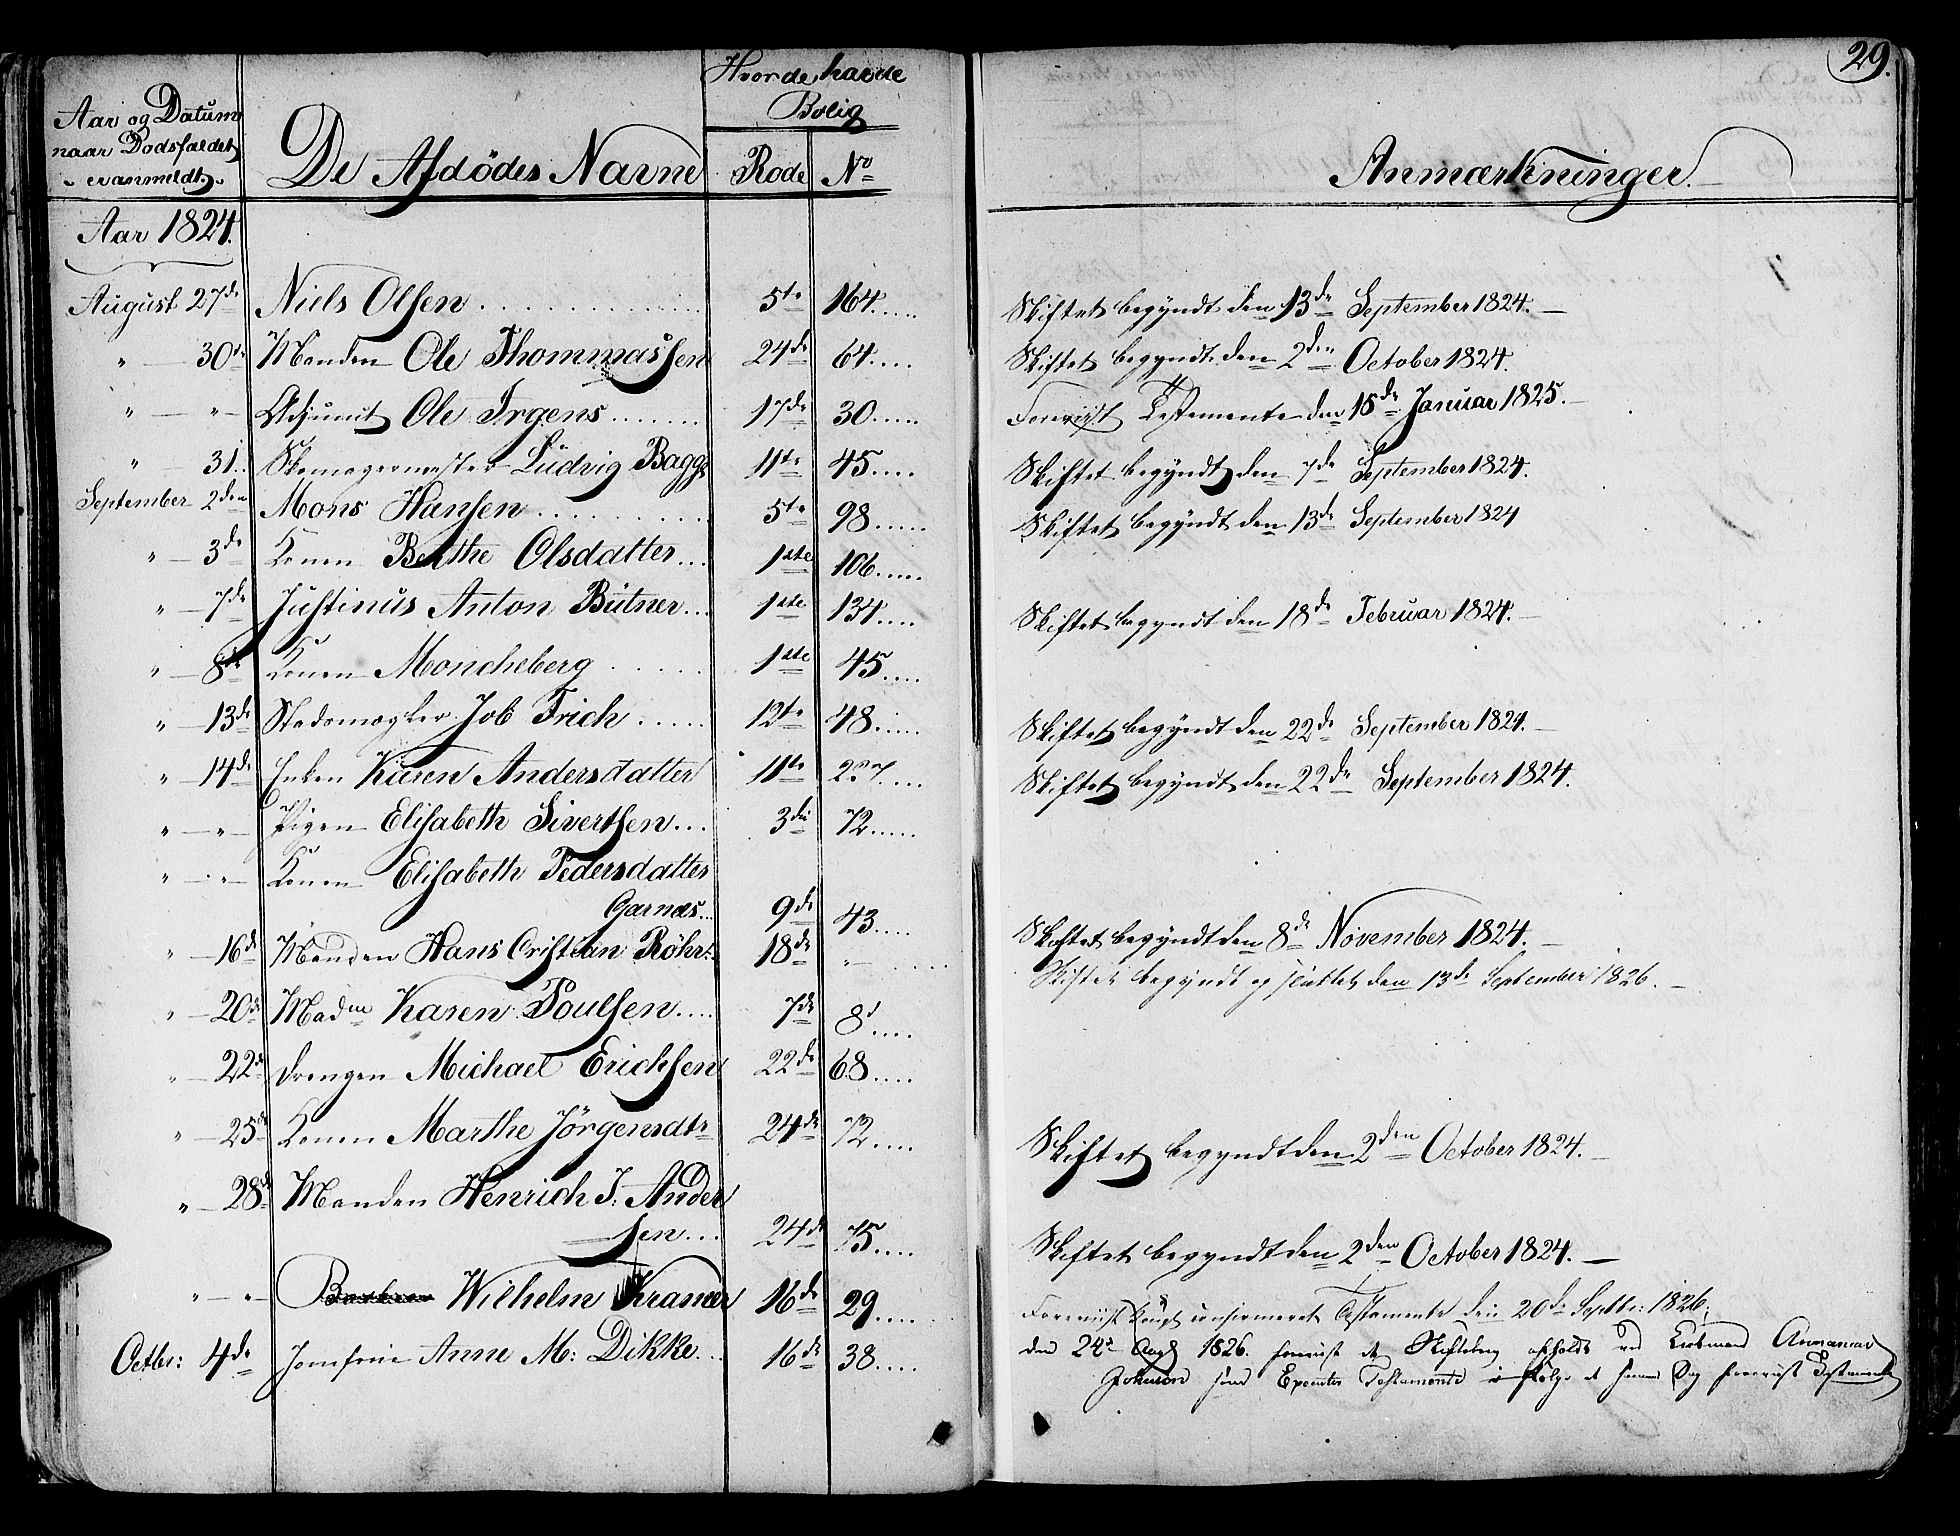 29.
Aar og Datum
naar Dødsfaldet
er anmeldt.
De Afdødes Navne
Hvor de havde
Bolig
Rode No
Anmærkninger.
Aar 1824.
August 27de Niels Olsen 5te 164 Skiftet begyndt den 13de September 1824.
" 30te Manden Ole Thommassen 24de 64 Skiftet begyndt den 2den October 1824.
" " Adjunct Ole Irgens 17de 30 Foreviist Testamente den 15de Januar 1825.
" 31. Skomagermester Ludvig Bagge 11te 45 Skiftet begyndt den 7de September 1824.
September 2den Mons Hansen 5te 98 Skiftet begyndt den 13de September 1824
" 3de Konen Berthe Olsdatter 1ste 106
" 7de Justinus Anton Bütner 1ste 134 Skiftet begyndt den 18de Februar 1824.
" 8de Konen Moncheberg 1ste 45
" 13de Stadsmægler Job Frich 12te 48 Skiftet begyndt den 22de September 1824.
" 14de Enken Karen Andersdatter 11te Skiftet begyndt den 22de September 1824.
" " Pigen Elisabeth Sivertsen 3die 72
" " Konen Elisabeth Pedersdatter
Garnæs 9de 43 Skiftet begyndt den 8de November 1824.
" 16de Manden Hans Cristian Röhr 18de " Skiftet begyndt og sluttet den 13de September 1826.
" 20de Madm Karen Poulsen 7de 8d
" 22de Drengen Michael Erichsen 22de 68
" 25de Konen Marthe Jörgensdtr 24de 72 Skiftet begyndt den 2den October 1824.
" 28de Manden Henrich J. Ander
sen 24de 75 Skiftet begyndt den 2den October 1824.
" " Wilhelm Kramer 16de 29 Foreviist Kongl confirmeret Testamente den 20de Septbr: 1826.
Octbr: 4de Jomfrue Anne M: Dikke 16de 38 den 24de Augt 1826. foreviist at Skiftebrev afholdt ved Kiøbmand
Johnson som Executor Testamente i Følge et samme Dag foreviist Testamente